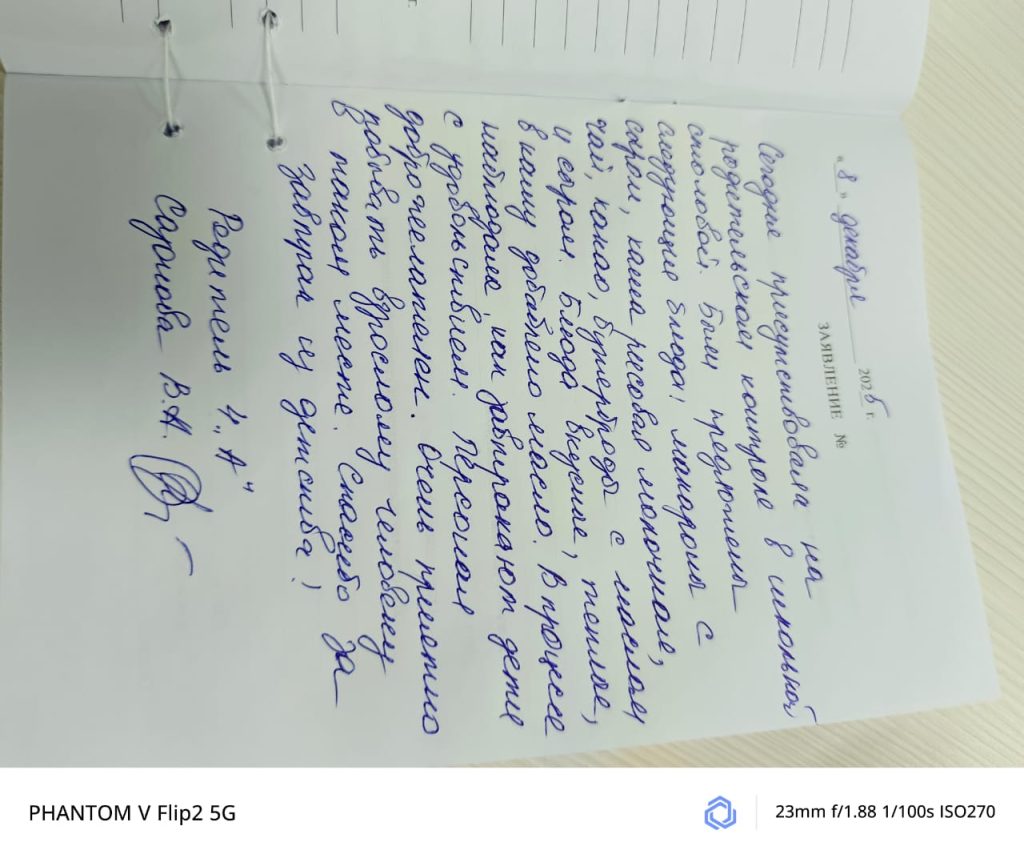 "8" декабря 2025 г.
ЗАЯВЛЕНИЕ №
Сегодня присутствовала на
родительском контроле в школьной
столовой. Были предложены
следующие блюда: макароны с
сыром, каша рисовая молочная,
чай, какао, бутерброды с маслом
и сыром. Блюда вкусные, теплые,
в кашу добавлено масло. В процессе
наблюдала, как завтракают дети
с удовольствием. Персонал
доброжелателен. Очень приятно
побывать взрослому человеку
в таком месте. Спасибо за
завтрак из детства!
Родитель 4 "А"
В.А.
PHANTOM V Flip2 5G
23mm f/1.88 1/100s ISO270